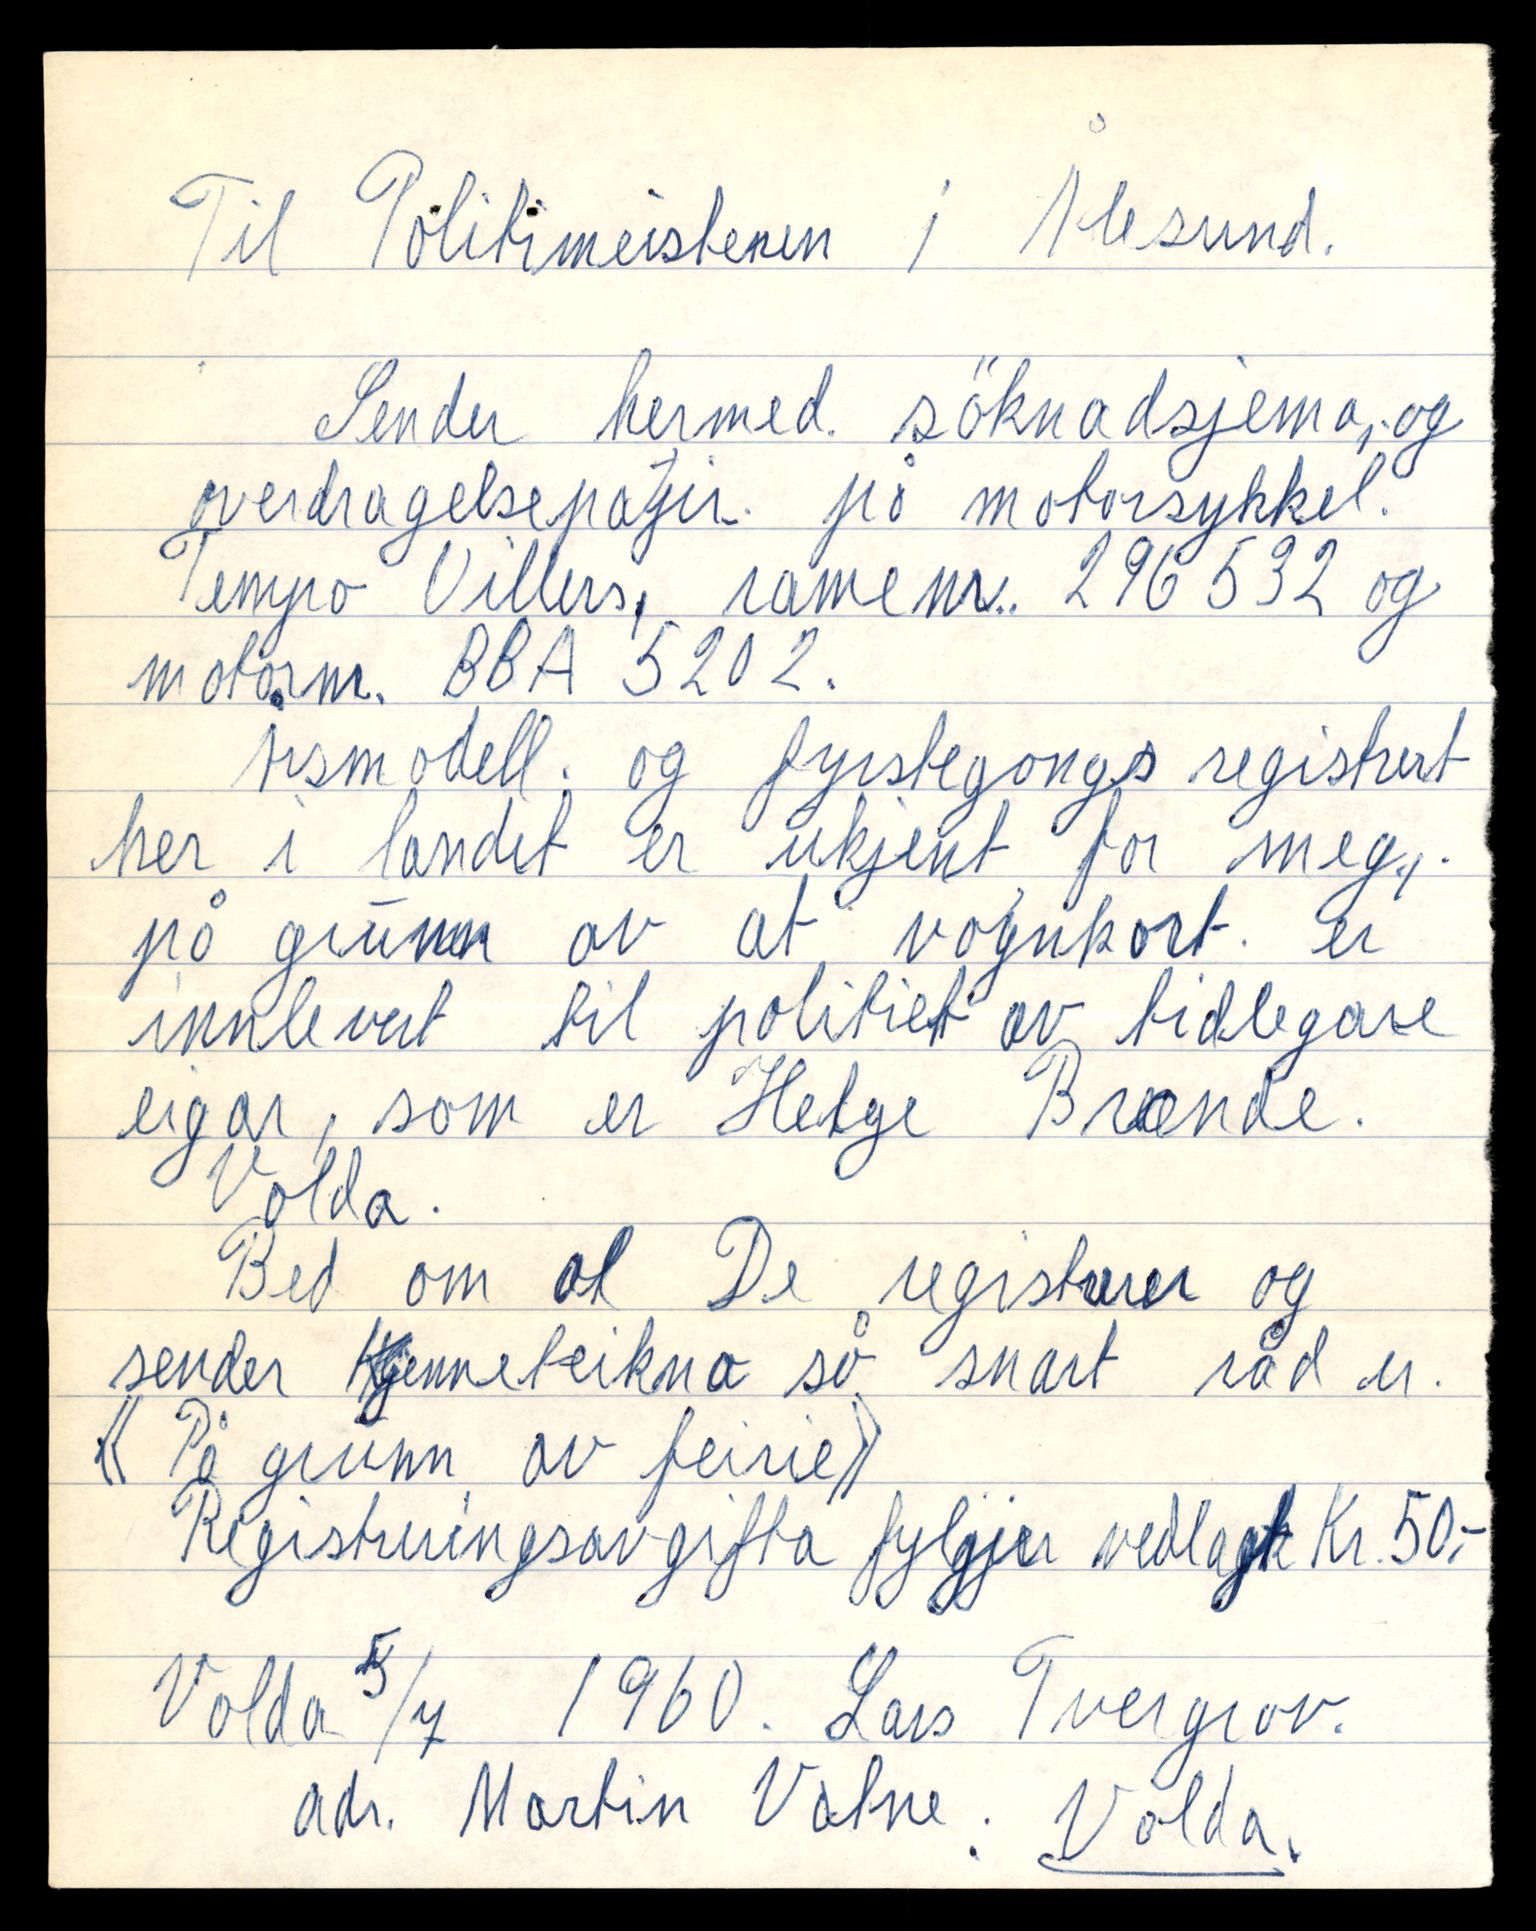 Til Politimeisteren i Ålesund.
Sender hermed. söknadsjema, og
overdragelsepapir. på motorsykkel.
Tempo Villers, ramenr. 296532 og
motornr. BBA 5202.
Årsmodell. og fyrstegongs registrert
her i landet er ukjent for meg,.
på grunn av at vognkort. er
innlevert til politiet av tidlegare
eigar, som er Helge Brænde.
Volda.
Bed om at De registrerer og
sender kjenneteikna så snart råd er.
(( På grunn av feirie))
Registreringsavgifta fylgjer vedlagt Kr. 50,-
Volda 5/7 1960. Lars Tvergrov.
adr. Martin Vatne. Volda.